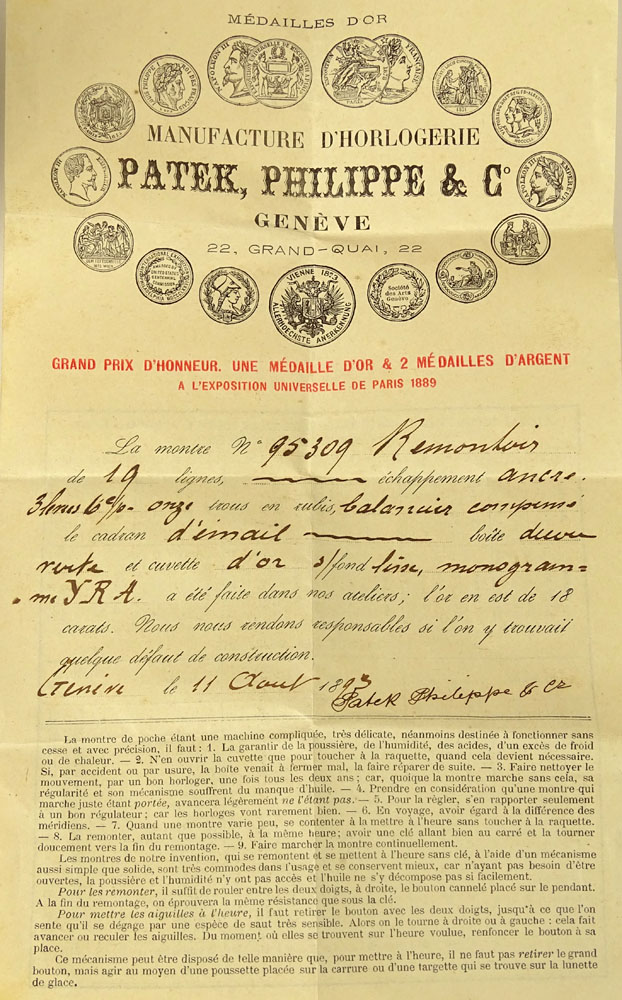 MÉDAILLES D'OR
MANUFACTURE D'HORLOGERIE
PATEK, PHILIPPE & Cº
GENÈVE
22, GRAND-QUAI, 22
NAPOLEON III
LOUIS PHILIPPE I ROI DES FRANÇAIS
NAPOLEON III
NAPOLEON III EMPEREUR
VIENNE 1873
ALLERHOECHSTE ANERKENNUNG
Société des Arts Genève
GRAND PRIX D'HONNEUR. UNE MÉDAILLE D'OR & 2 MÉDAILLES D'ARGENT
A L'EXPOSITION UNIVERSELLE DE PARIS 1889
La montre Nº 95309 Remontoir
de 19 lignes, échappement ancre.
onze trous en rubis, balancier compensé
le cadran d'émail boîte décou
verte et cuvette d'or s/fond lisse, monogram=
me YRA. a été faite dans nos ateliers; l'or en est de 18
carats. Nous nous rendons responsables si l'on y trouvait
quelque défaut de construction.
Genève le 11 Aout 1893 Patek Philippe & Co
La montre de poche étant une machine compliquée, très délicate, néanmoins destinée à fonctionner sans
cesse et avec précision, il faut: 1. La garantir de la poussière, de l'humidité, des acides, d'un excès de froid
ou de chaleur. — 2. N'en ouvrir la cuvette que pour toucher à la raquette, quand cela devient nécessaire.
Si, par accident ou par usure, la boite venait à fermer mal, la faire réparer de suite. — 3. Faire nettoyer le
mouvement, par un bon horloger, une fois tous les deux ans; car, quoique la montre marche sans cela, sa
régularité et son mécanisme souffrent du manque d'huile. — 4. Prendre en considération qu'une montre qui
marche juste étant portée, avancera légèrement ne l'étant pas. — 5. Pour la régler, s'en rapporter seulement
à un bon régulateur; car les horloges vont rarement bien. — 6. En voyage, avoir égard à la différence des
méridiens. — 7. Quand une montre varie peu, se contenter à la mettre à l'heure sans toucher à la raquette.
— 8. La remonter, autant que possible, à la même heure; avoir une clé allant bien au carré et la tourner
doucement vers la fin du remontage. — 9. Faire marcher la montre continuellement.
Les montres de notre invention, qui se remontent et se mettent à l'heure sans clé, à l'aide d'un mécanisme
aussi simple que solide, sont très commodes dans l'usage et se conservent mieux, car n'ayant pas besoin d'être
ouvertes, la poussière et l'humidité n'y ont pas accès et l'huile ne s'y décompose pas si facilement.
Pour les remonter, il suffit de rouler entre les deux doigts, à droite, le bouton cannelé placé sur le pendant.
A la fin du remontage, on éprouvera la même résistance que sous la clé.
Pour mettre les aiguilles à l'heure, il faut retirer le bouton avec les deux doigts, jusqu'à ce que l'on
sente qu'il se dégage par une espèce de saut très sensible. Alors on le tourne à droite ou à gauche: cela fait
avancer ou reculer les aiguilles. Du moment où elles se trouvent sur l'heure voulue, renfoncer le bouton à sa
place.
Ce mécanisme peut être disposé de telle manière que, pour mettre à l'heure, il ne faut pas retirer le grand
bouton, mais agir au moyen d'une poussette placée sur la carrure ou d'une targette qui se trouve sur la lunette
de glace.